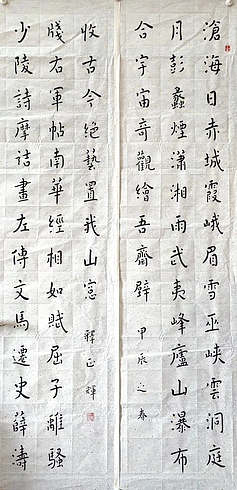 滄海日赤城霞峨眉雪巫峽雲洞庭
月彭蠡煙瀟湘雨武夷峰廬山瀑布
合宇宙奇觀繪吾齋壁 甲辰之春
少陵詩摩詰畫左傳文馬遷史薛濤
牋右軍帖南華經相如賦屈子離騷
收古今絕藝置我山窓 釋正